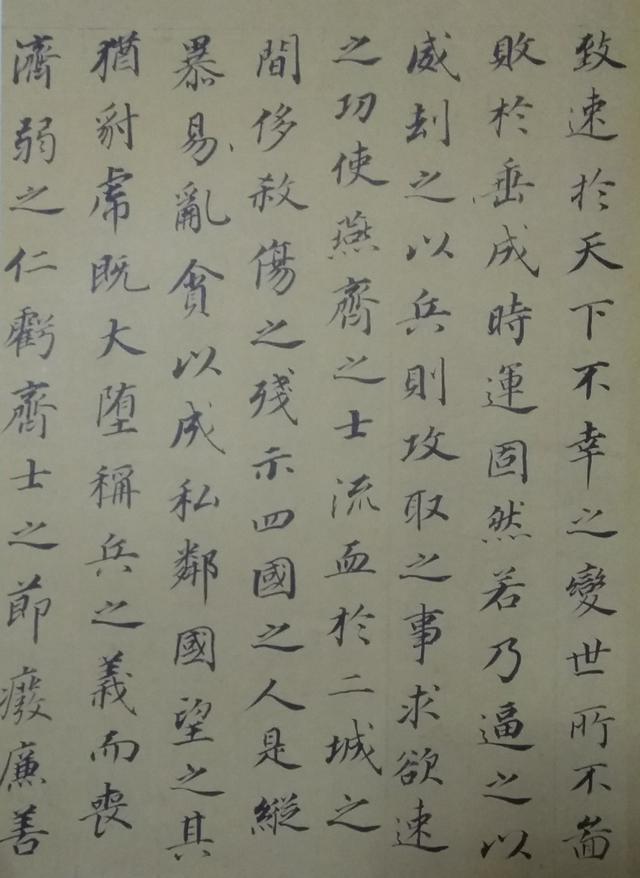 致速於天下不幸之變世所不啚
敗於垂成時運固然若乃逼之以
威刼之以兵則攻取之事求欲速
之功使燕齊之士流血於二城之
間侈殺傷之残示四國之人是縱
暴易亂貪以成私鄰國望之其
猶豺虎既大堕稱兵之義而喪
濟弱之仁虧齊士之節癈廉善